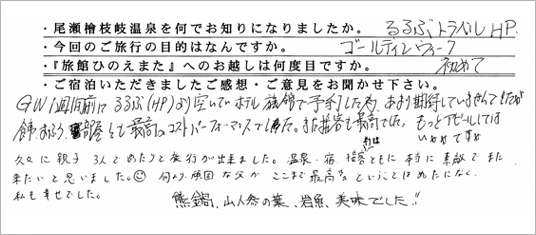 ・尾瀬檜枝岐温泉を何でお知りになりましたか。 るるぶトラベルHP.
・今回のご旅行の目的はなんですか。 ゴールディンウィーク
・『旅館ひのえまた』へのお越しは何度目ですか。 初めて
・ご宿泊いただきましたご感想・ご意見をお聞かせ下さい。
GW1週間前にるるぶ(HP)より空いていたホテル旅館で予約した為、あまり期待していませんでしたが
部屋とも最高のコストパーフォーマンスでした。また接客も最高でした。もっとアピールしては
いかがですか
久々に親子3人でゆったりと旅行が出来ました。温泉・宿・接客ともに本当に素敵でまた
来たいと思いました。 何より頑固な父がここまで最高ということはめったになく、
私も幸せでした。
熊鍋、山人参の葉、岩魚、美味でした!!